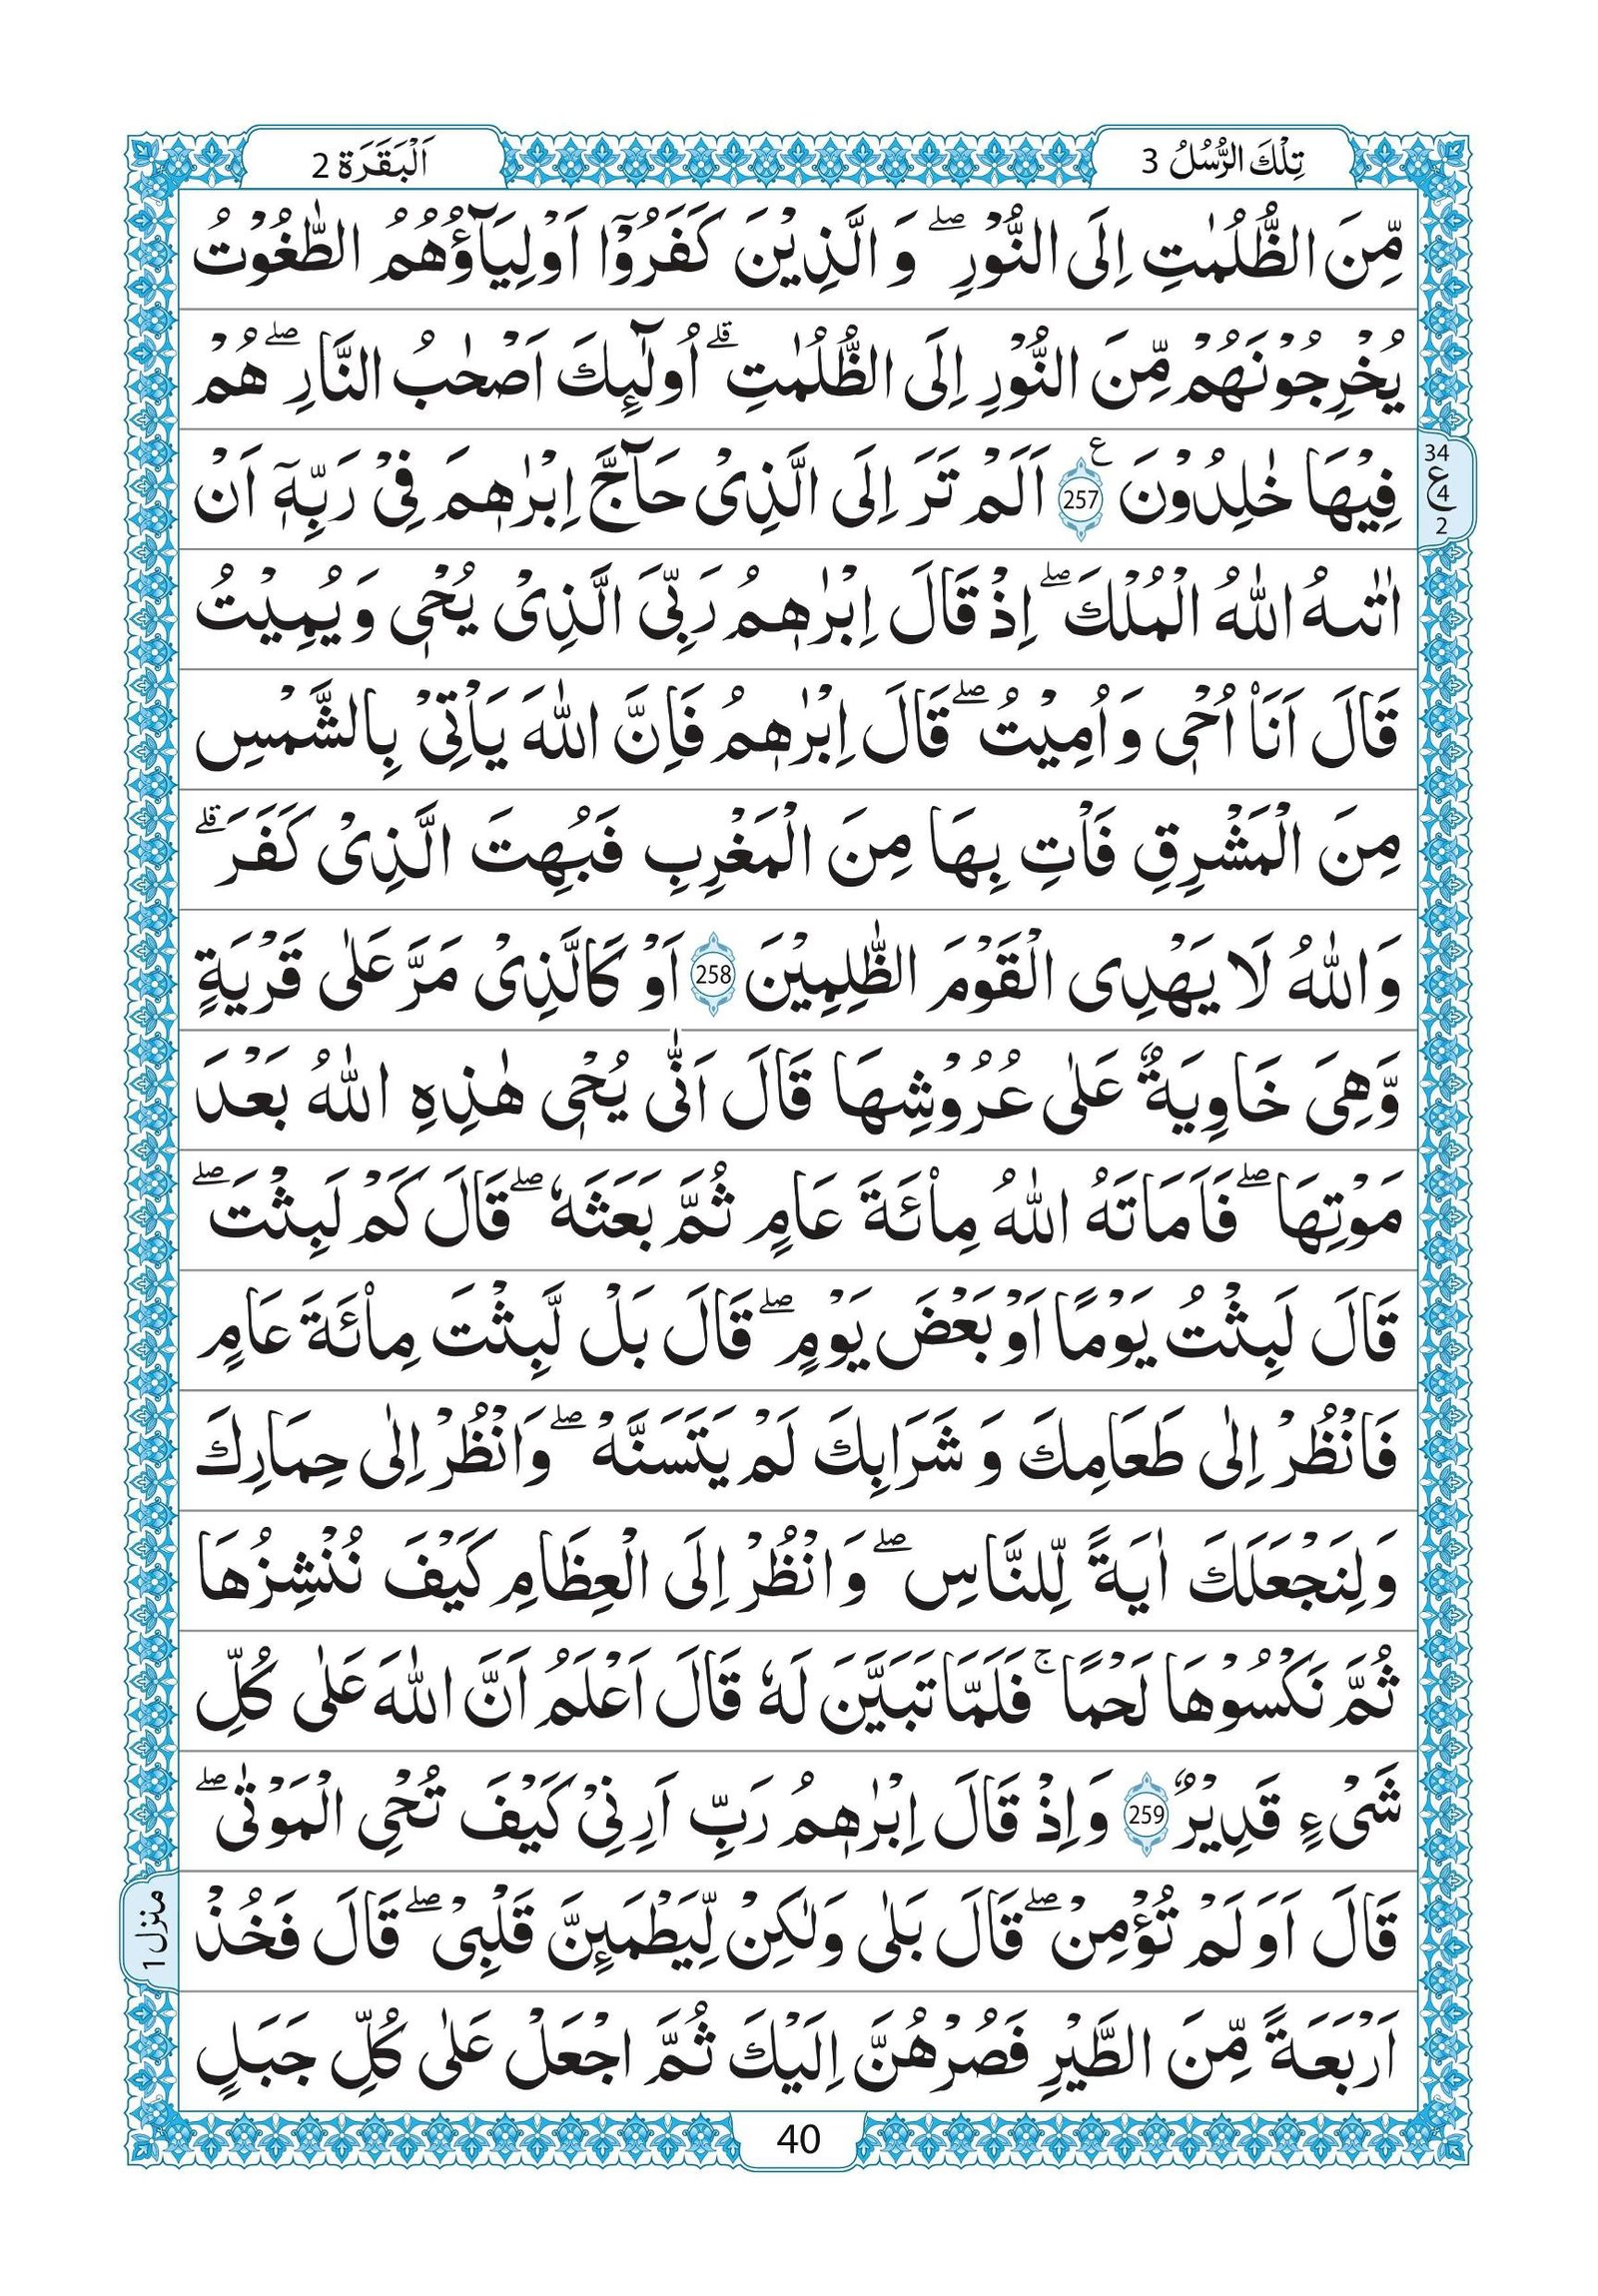 تِلْكَ الرُّسُلُ 3
اَلْبَقَرَة 2
مِّنَ الظُّلُمٰتِ اِلَى النُّوْرِ ۖ وَ الَّذِيْنَ كَفَرُوْۤا اَوْلِيَآؤُهُمُ الطّٰغُوْتُ
يُخْرِجُوْنَهُمْ مِّنَ النُّوْرِ اِلَى الظُّلُمٰتِ ۗ اُولٰٓئِكَ اَصْحٰبُ النَّارِ ۖ هُمْ
فِيْهَا خٰلِدُوْنَ ع 257 اَلَمْ تَرَ اِلَى الَّذِىْ حَآجَّ اِبْرٰهٖمَ فِىْ رَبِّهٖۤ اَنْ
34 ع 4 2
اٰتٰىهُ اللّٰهُ الْمُلْكَ ۖ اِذْ قَالَ اِبْرٰهٖمُ رَبِّىَ الَّذِىْ يُحْىٖ وَيُمِيْتُ
قَالَ اَنَا۠ اُحْىٖ وَاُمِيْتُ ۖ قَالَ اِبْرٰهٖمُ فَاِنَّ اللّٰهَ يَاْتِىْ بِالشَّمْسِ
مِنَ الْمَشْرِقِ فَاْتِ بِهَا مِنَ الْمَغْرِبِ فَبُهِتَ الَّذِىْ كَفَرَ ۗ
وَاللّٰهُ لَا يَهْدِى الْقَوْمَ الظّٰلِمِيْنَ 258 اَوْ كَالَّذِىْ مَرَّ عَلٰى قَرْيَةٍ
وَّهِىَ خَاوِيَةٌ عَلٰى عُرُوْشِهَا قَالَ اَنّٰى يُحْىٖ هٰذِهِ اللّٰهُ بَعْدَ
مَوْتِهَا ۖ فَاَمَاتَهُ اللّٰهُ مِا۟ئَةَ عَامٍ ثُمَّ بَعَثَهٗ ۖ قَالَ كَمْ لَبِثْتَ ۖ
قَالَ لَبِثْتُ يَوْمًا اَوْ بَعْضَ يَوْمٍ ۖ قَالَ بَلْ لَّبِثْتَ مِا۟ئَةَ عَامٍ
فَانْظُرْ اِلٰى طَعَامِكَ وَ شَرَابِكَ لَمْ يَتَسَنَّهْ ۖ وَانْظُرْ اِلٰى حِمَارِكَ
وَلِنَجْعَلَكَ اٰيَةً لِّلنَّاسِ ۖ وَانْظُرْ اِلَى الْعِظَامِ كَيْفَ نُنْشِزُهَا
ثُمَّ نَكْسُوْهَا لَحْمًا ۚ فَلَمَّا تَبَيَّنَ لَهٗ قَالَ اَعْلَمُ اَنَّ اللّٰهَ عَلٰى كُلِّ
شَىْءٍ قَدِيْرٌ 259 وَاِذْ قَالَ اِبْرٰهٖمُ رَبِّ اَرِنِىْ كَيْفَ تُحْىِ الْمَوْتٰى ۖ
قَالَ اَوَلَمْ تُؤْمِنْ ۖ قَالَ بَلٰى وَلٰكِنْ لِّيَطْمَئِنَّ قَلْبِىْ ۖ قَالَ فَخُذْ
منزل 1
اَرْبَعَةً مِّنَ الطَّيْرِ فَصُرْهُنَّ اِلَيْكَ ثُمَّ اجْعَلْ عَلٰى كُلِّ جَبَلٍ
40